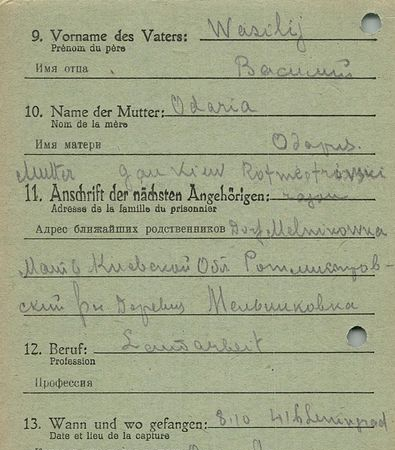 9. Vorname des Vaters: Wasilij
Prénom du père
Имя отца Василий
10. Name der Mutter: Odaria
Nom de la mère
Имя матери Одария.
Mutter gau Kiew Rotmestrowski
11. Anschrift der nächsten Angehörigen: rajon
Adresse de la famille du prisonnier
Адрес ближайших родственников Dorf Melnikowka
Мать Киевской Обл Ротмистров-
ский рн Деревня Мельниковка
12. Beruf: Landarbeit
Profession
Профессия
13. Wann und wo gefangen: 8.10 41 b Leningrad
Date et lieu de la capture